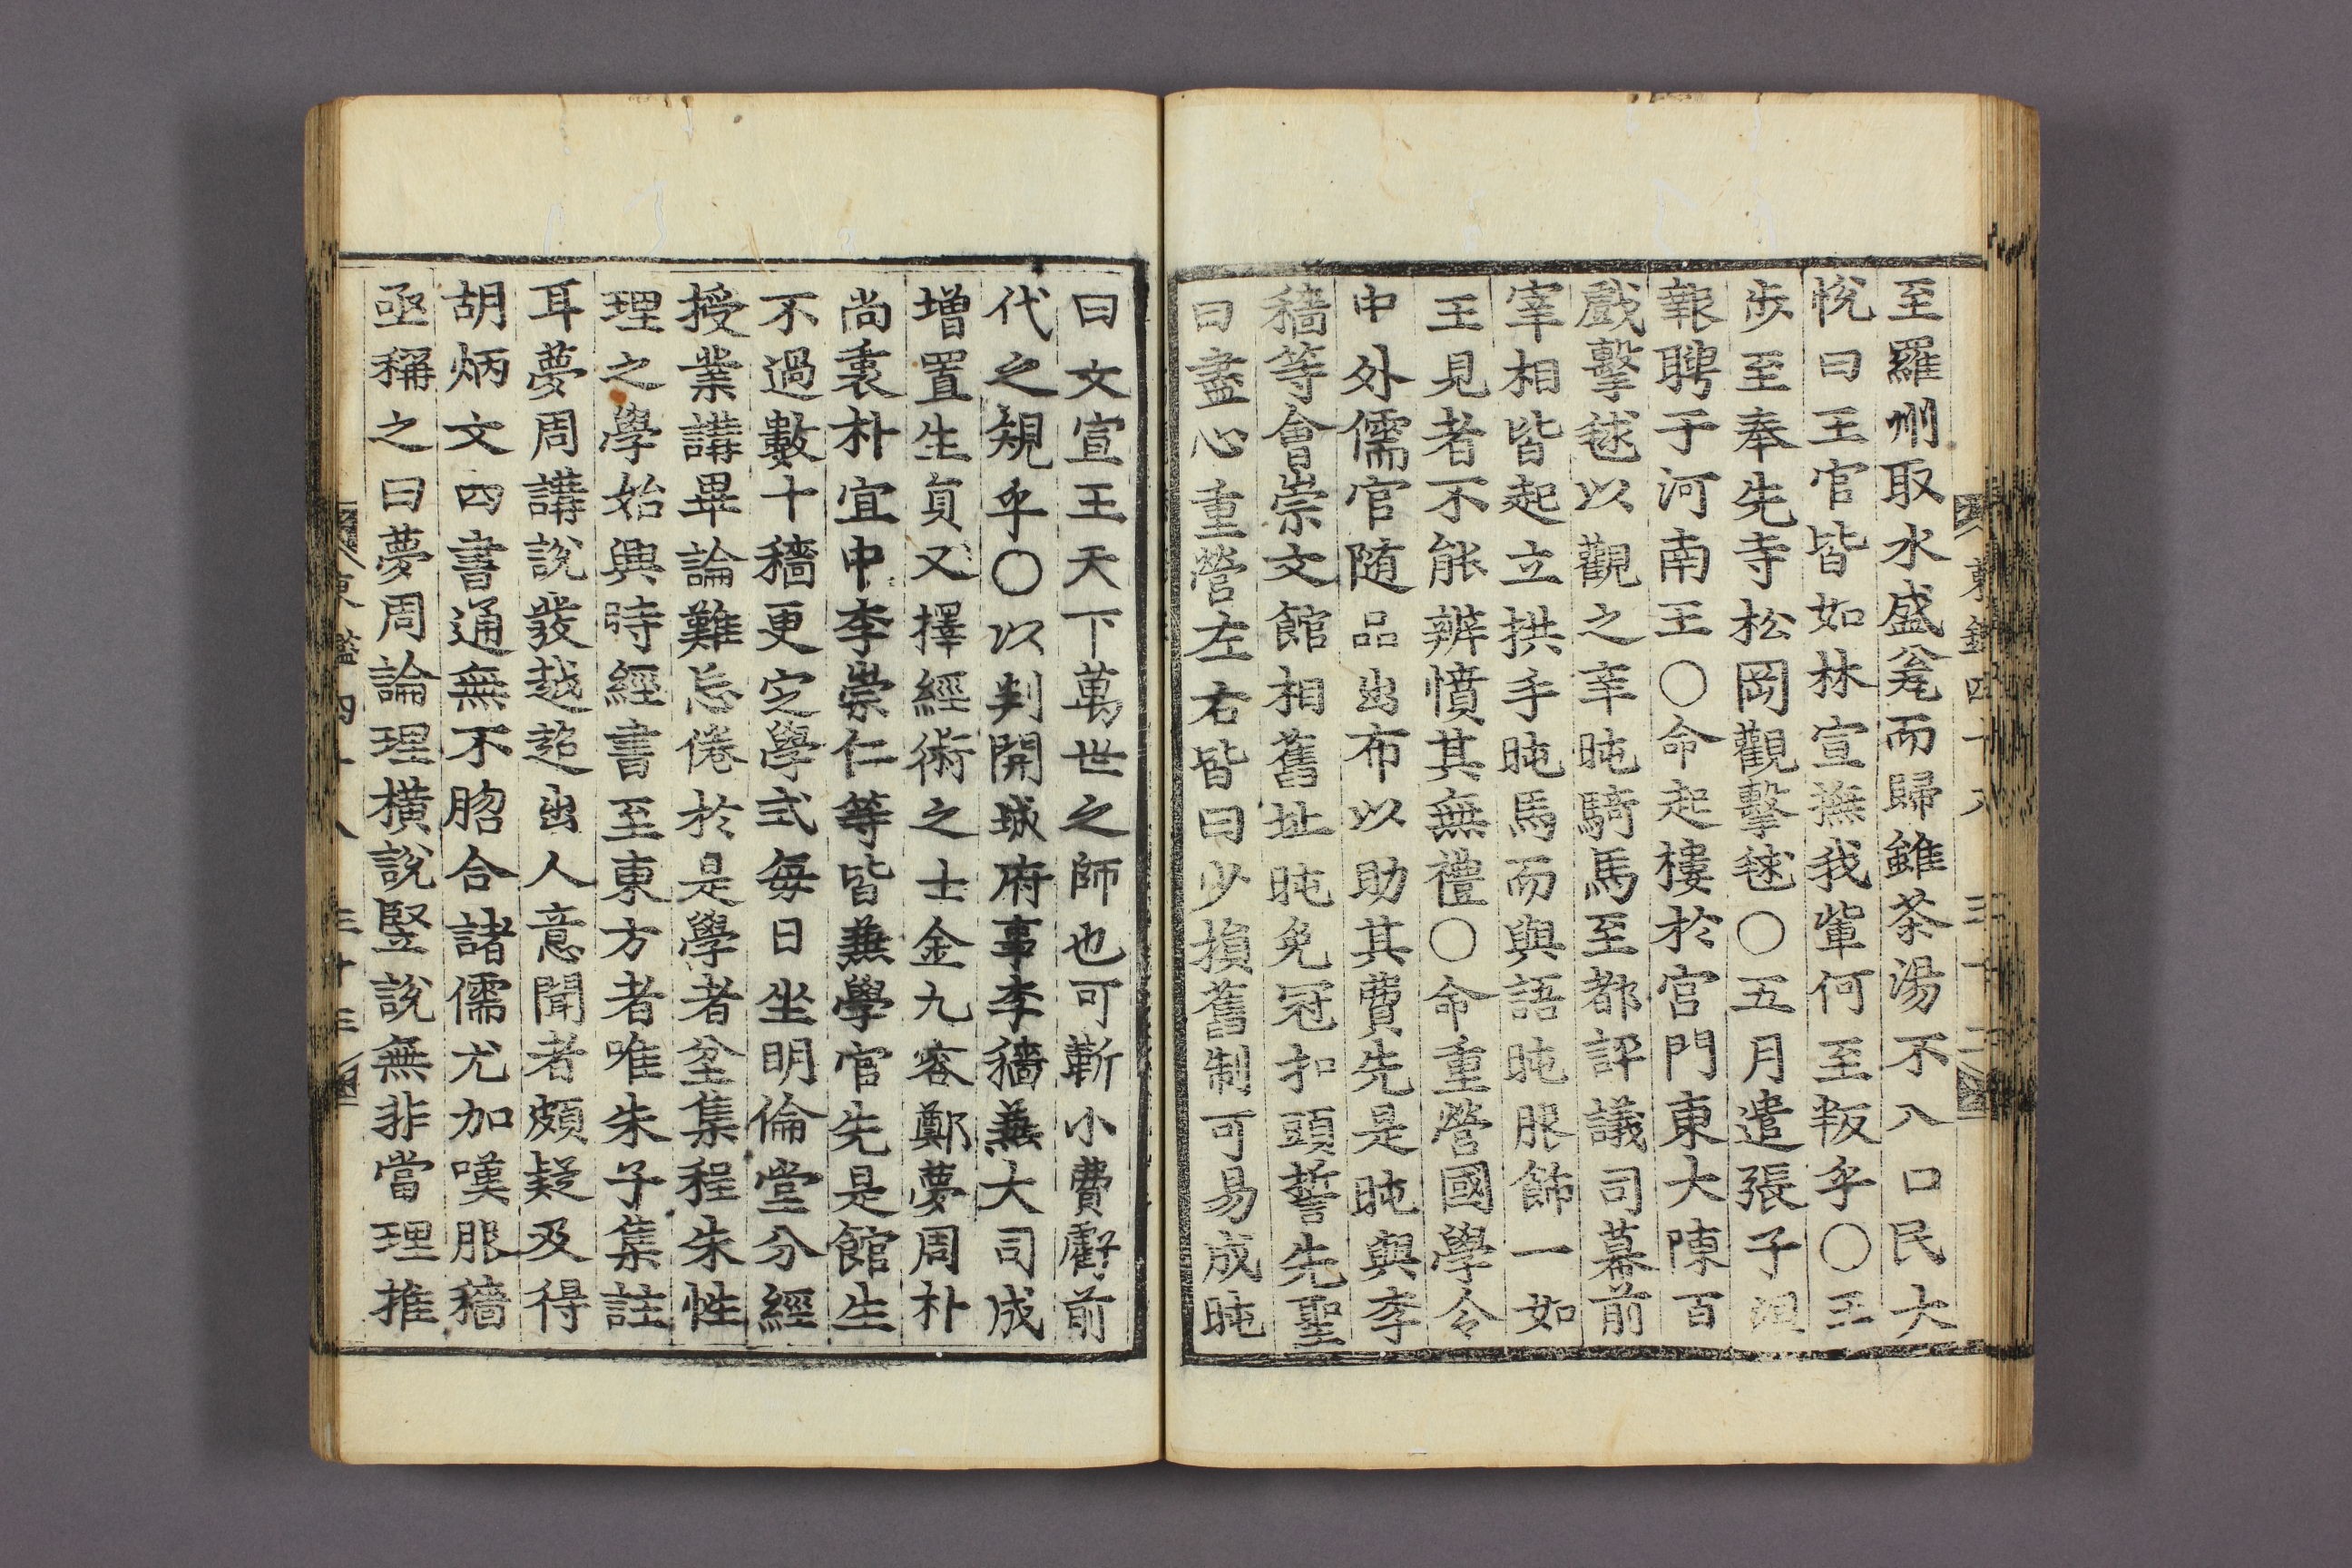 至羅州取水盛瓮而歸雖茶湯不入口民大
悅曰王官皆如林宣撫我軰何至叛乎○王
步至奉先寺松岡觀擊毬○五月遣張子溫
報聘于河南王○命起樓於宮門東大陳百
戲擊毬以觀之辛旽騎馬至都評議司幕前
宰相皆起立拱手旽馬而與語旽服飾一如
王見者不能辨憤其無禮○命重營國學令
中外儒官随品出布以助其費先是旽與李
穡等會崇文館相舊址旽免冠扣頭誓先聖
曰盡心重營左右皆曰少損舊制可易成旽
曰文宣王天下萬世之師也可靳小費虧前
代之規乎○以判開城府事李穡兼大司成
增置生貟又擇經術之士金九容鄭夢周朴
尚衷朴宜中李崇仁等皆兼學官先是館生
不過數十穡更定學式每日坐明倫堂分經
授業講畢論難忘倦於是學者坌集程朱性
理之學始興時經書至東方者唯朱子集註
耳夢周講說發越超出人意聞者頗疑及得
胡炳文四書通無不脗合諸儒尤加嘆服穡
亟稱之曰夢周論理橫說竪說無非當理推